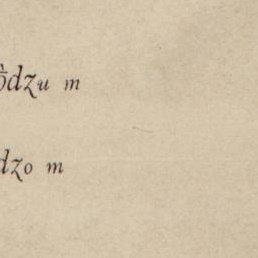 òdzu m
dzo m